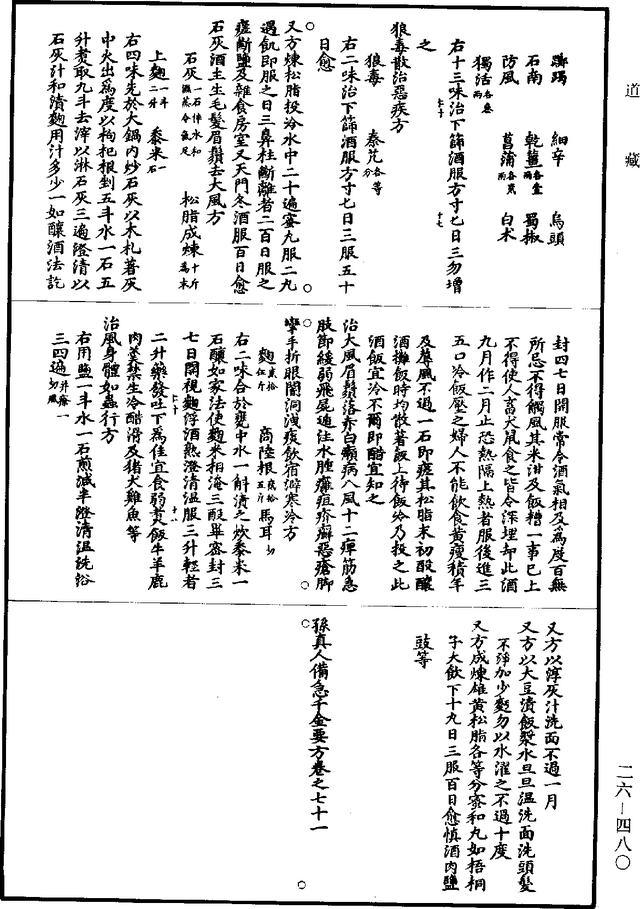 道藏
躑躅 細辛 烏頭
石南 乾薑各壹兩 蜀椒
防風 菖蒲各貳兩 白术
獨活各叁兩
右十三味治下篩酒服方寸匕日三勿增
之
狼毒散治惡疾方
狼毒 秦艽各等分
右二味治下篩酒服方寸匕日三服五十
日愈
又方煉松脂投冷水中二十遍蜜丸服二九
遇飢即服之日三鼻柱斷離者二百日服之
瘥斷鹽及雜食房室又天門冬酒服百日愈
石灰酒主生毛髮眉鬚去大風方
石灰一石停水和濕蒸令氣足 松脂成煉十斤爲末
上麴一斗二升 黍米一石
右四味先於大鐺內炒石灰以木札著灰
中火出爲度以枸杞根剉五斗水一石五
升煑取九斗去滓以淋石灰三遍澄清以
石灰汁和漬麴用汁多少一如釀酒法訖
封四七日開服常令酒氣相及爲度百無
所忌不得觸風其米泔及飯糟一事已上
不得使人畜犬鼠食之皆令深埋却此酒
九月作二月止恐熱隔上熱者服後進三
五口冷飯壓之婦人不能飲食黃瘦積年
及蓐風不過一石即瘥其松脂末初酘釀
酒攤飯時均散著飯上待飯冷乃投之此
酒飯宜冷不爾即醋宜知之
治大風眉鬚落赤白癩病八風十二痺筋急
肢節緩弱飛屍遁注水腫癰疽疥癬惡瘡脚
攣手折眼闇洞洩痰飲宿澼寒冷方
麴貳拾伍斤 商陸根貳拾五斤 馬耳切
右二味合於甕中水一斛漬之炊黍米一
石釀如家法使麴米相淹三酘畢密封三
七日開視麴浮酒熟澄清溫服三升輕者
二升藥發吐下爲佳宜食弱煑飯牛羊鹿
肉羹禁生冷醋滑及豬犬雞魚等
治風身體如蟲行方
右用鹽一斗水一石煎減半澄清溫洗浴
三四遍并療一切風
又方以淳灰汁洗面不過一月
又方以大豆漬飯漿水旦旦溫洗面洗頭髮
不淨加少麪勿以水濯之不過十度
又方成煉雄黃松脂各等分蜜和丸如梧桐
子大飲下十九日三服百日愈慎酒肉鹽
豉等
孫真人備急千金要方卷之七十一
二六—四八〇